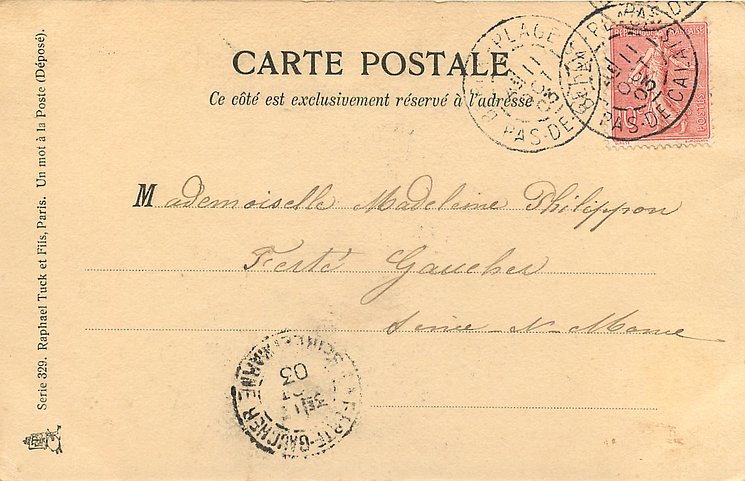 CARTE POSTALE
Ce côté est exclusivement réservé à l'adresse
Mademoiselle Madeleine Philippon
Ferté Gaucher
Seine-N-Marne
Serie 329. Raphael Tuck et Fils, Paris. Un mot à la Poste (Déposé).
PLAGE
11
03
PAS-DE-
PLAGE
11
03
PAS-DE-CALAIS
LA FERTE-GAUCHER
SEINE-ET-MARNE
03